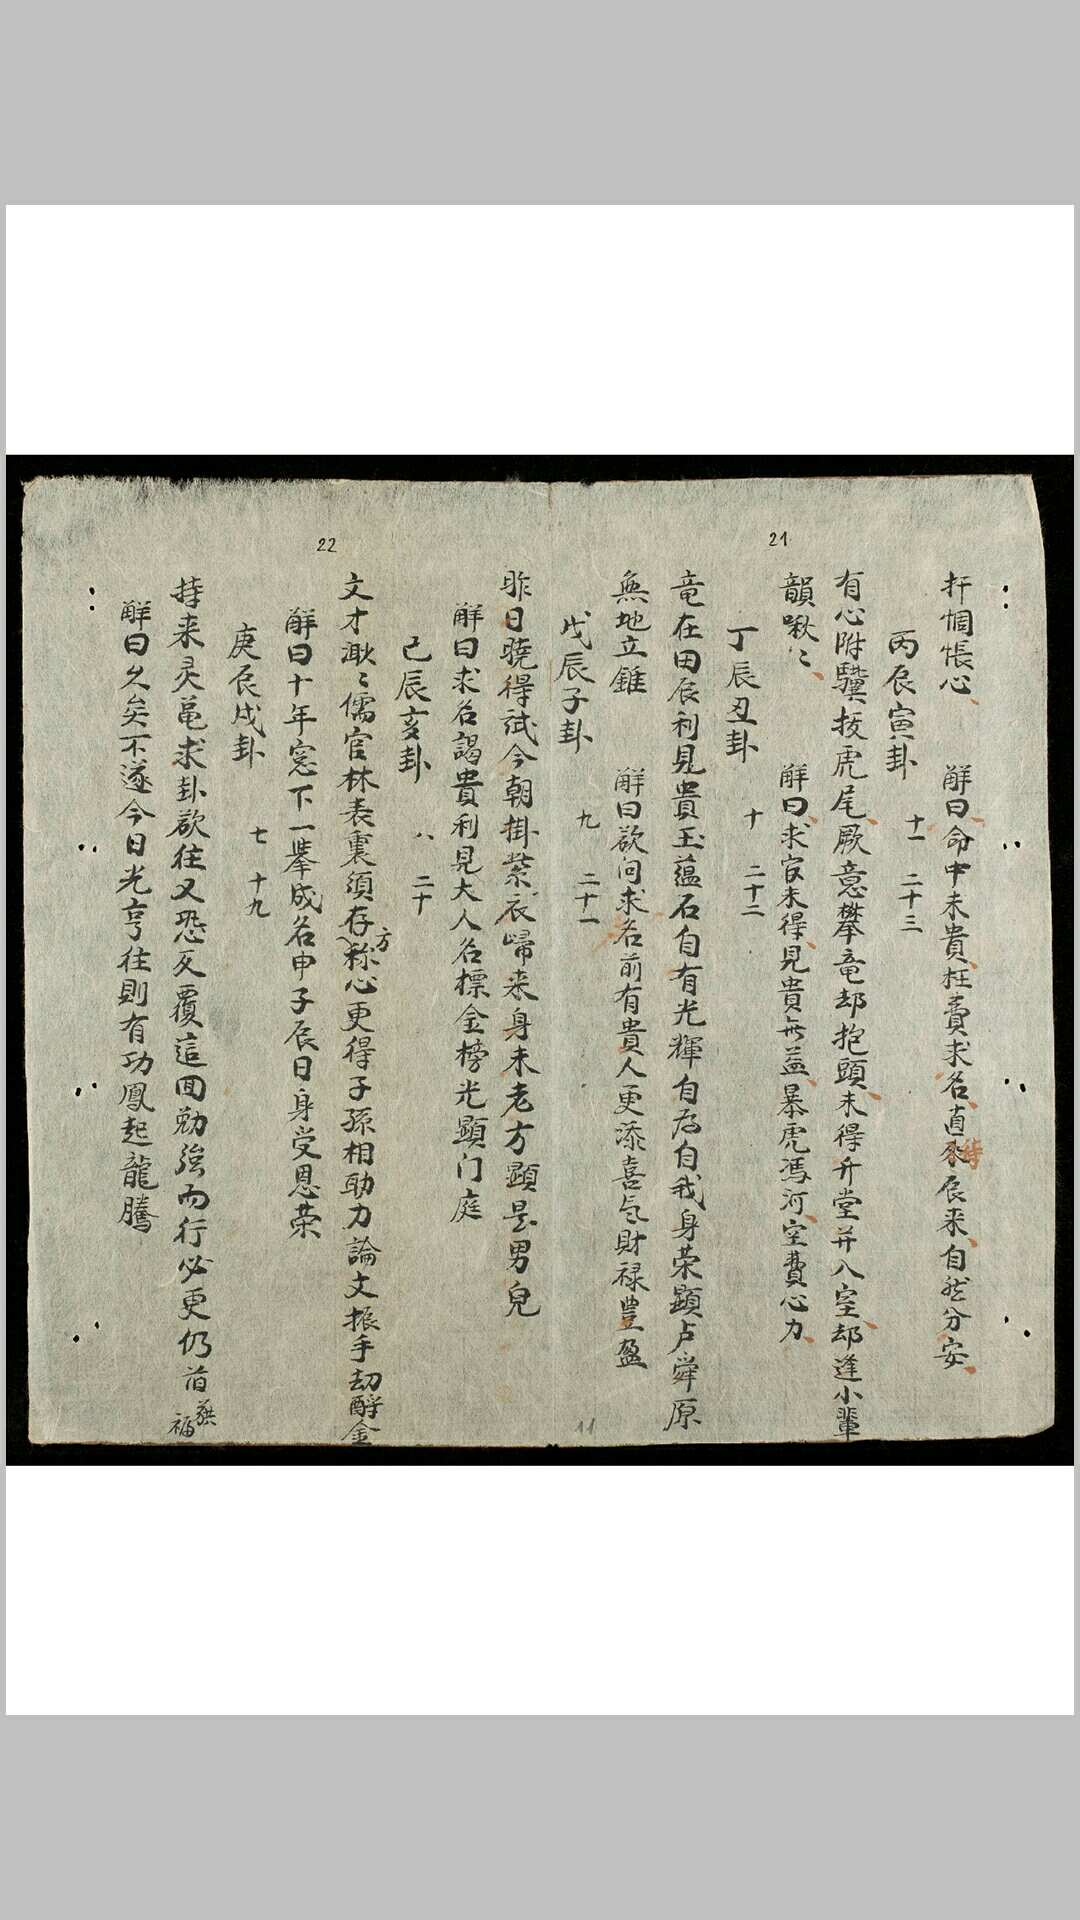 21
扞惆悵心、 解曰命中未貴、枉費求名、直待辰来、自然分安、
丙辰寅卦 十一 二十三
有心附驥拔虎尾、厥意攀竜却抱頭、未得升堂并入室、却逢小輩
韻啾〻、 解曰、求官未得、見貴無益、暴虎馮河、空費心力、
丁辰丑卦 十 二十二
竜在田辰利見貴玉蘊石自有光輝自為自我身荣顕卢舜原
無地立錐 解曰欲问求名前有貴人更添喜气財禄豊盈
戊辰子卦 九 二十一
昨日曉得試今朝掛紫衣帰来身未老方顕是男兒
解曰求名謁貴利見大人名標金榜光顕门庭
己辰亥卦 八 二十
22
文才濈〻儒官林表裏須存方称心更得子孫相助力論文振手却酹金
解曰十年窓下一舉成名申子辰日身受恩荣
庚辰戌卦 七 十九
持来灵黾求卦欲往又恐反覆這回勉強而行必更仍首蔴福
解曰久矣不遂今日光亨往則有功鳳起龍騰
11